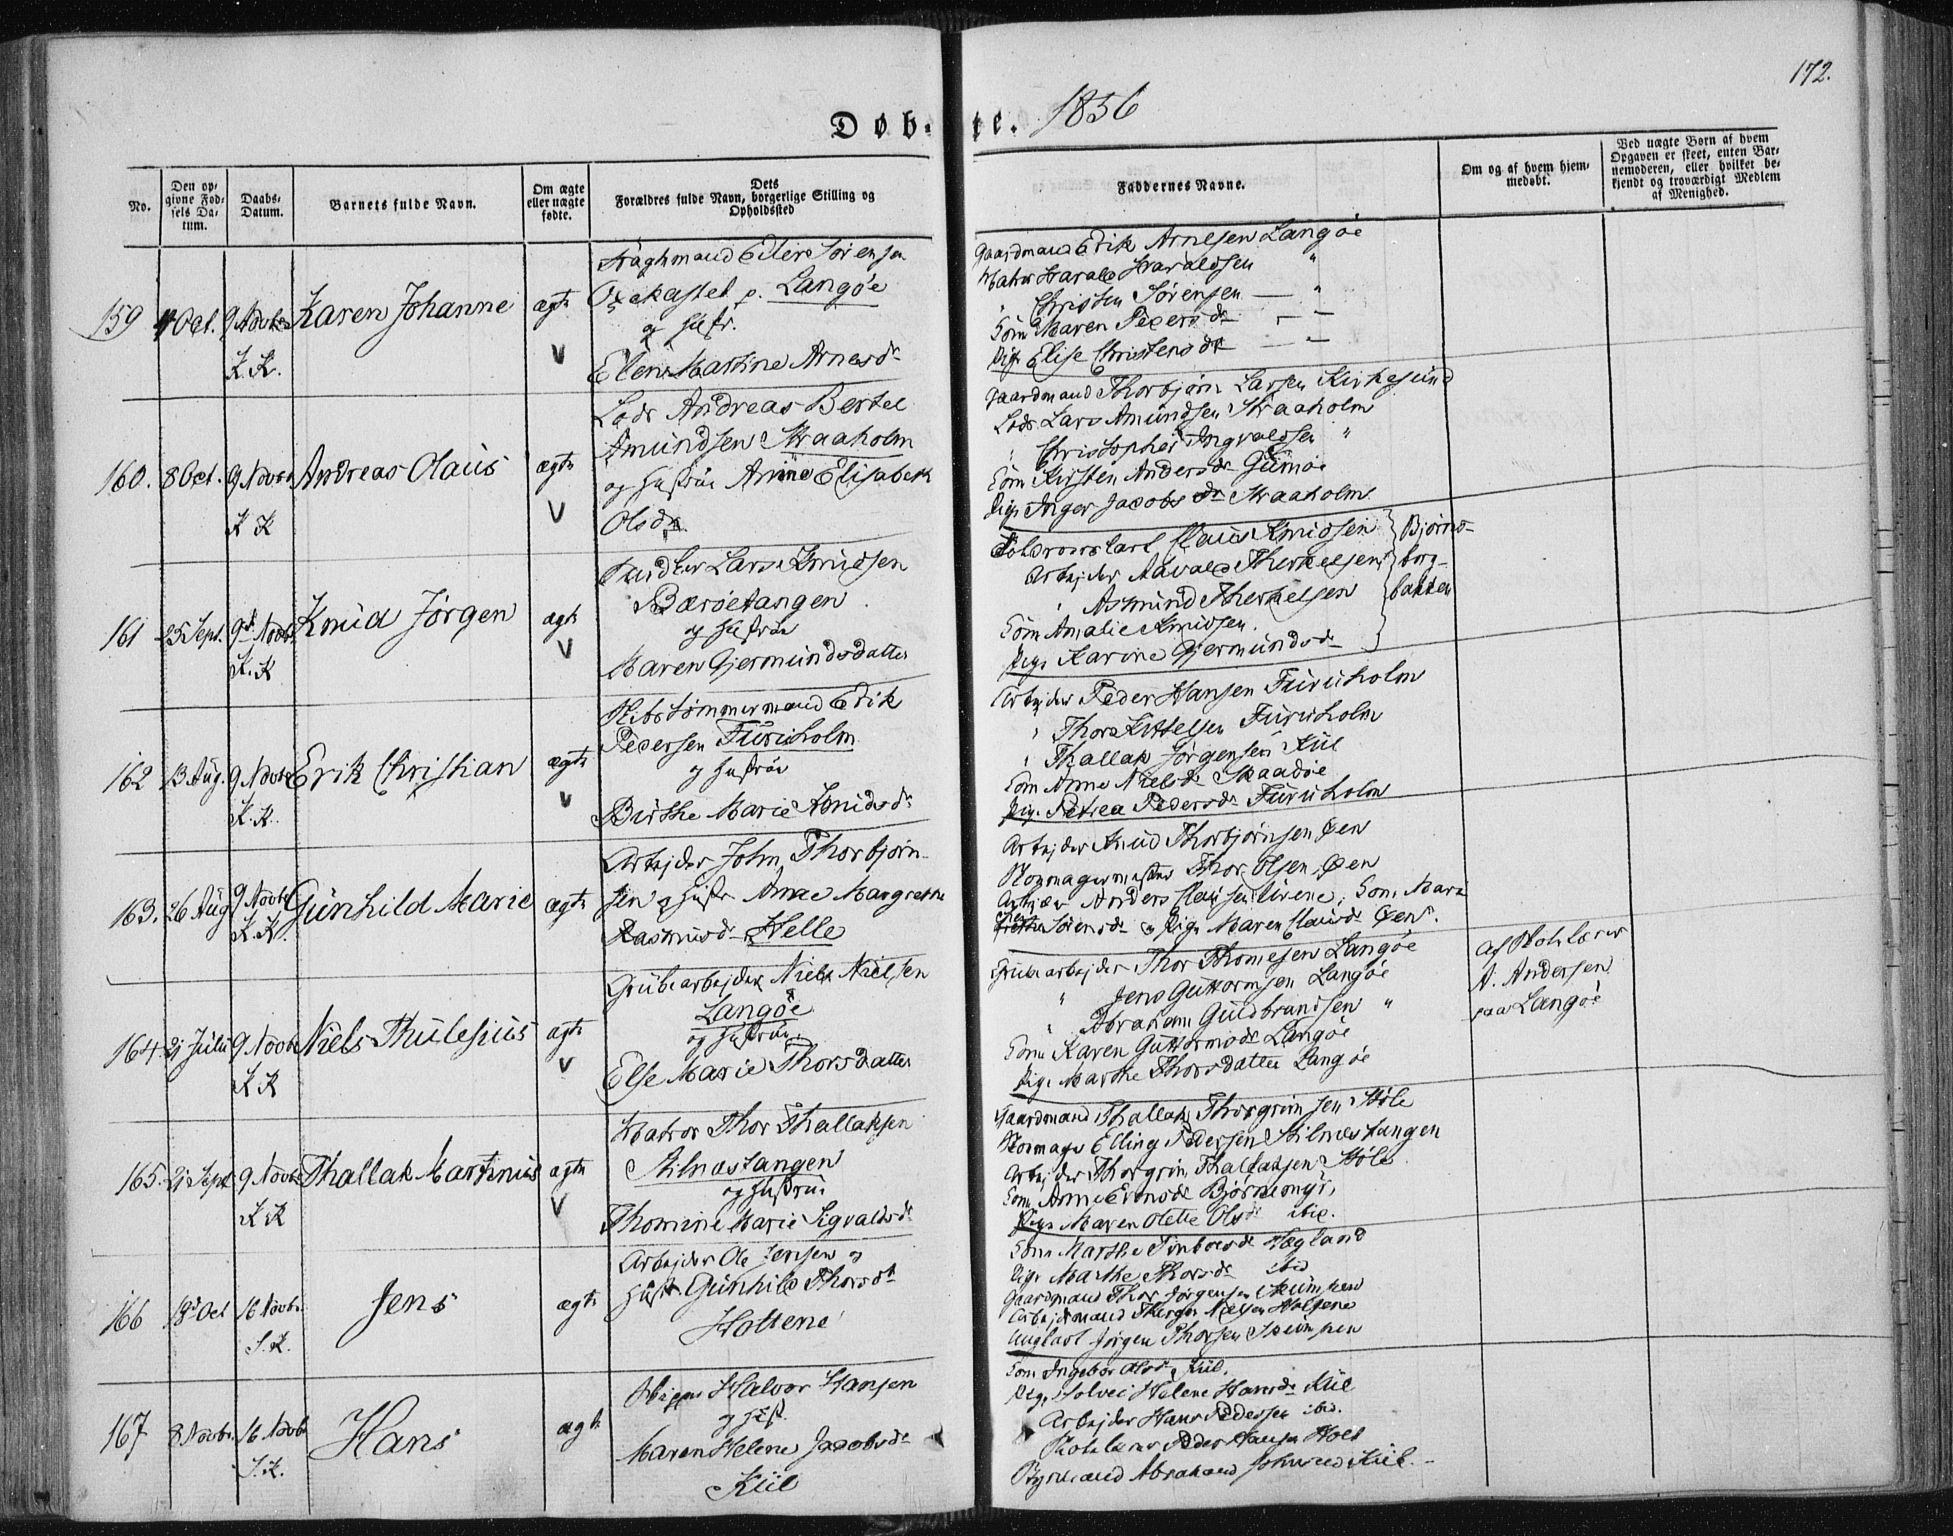 172.
Døb-te. 1856
No.
Den opgivne Fødsels Datum.
Daabs-Datum.
Barnets fulde Navn.
Om ægte eller uægte fødte.
Dets Forældres fulde Navn, borgerlige Stilling og Opholdssted
Faddernes Navne.
Om og af hvem hjemmedøbt.
Ved uægte Børn af hvem Opgaven er skeet, enten Barnemoderen, eller hvilket bekjendt og troværdigt Medlem af Menighed.
159 4 Oct. 9 Novbr K.K. Karen Johanne ægte
Eilert Sørensen
Langøe
og Hustr.
Elen Martine Arnesdr
Gaardmand Erik Arnesen Langøe
Matros Harald Haraldsen "
" Christen Sørensen — "
Kone Maren Pedersdr " —
Pige Elise Christensdr — —
160. 8 Oct. 9 Novbr K K Andreas Olaus ægte
Lods Andreas Bertel
Amundsen Straaholm
og Hustrue Anne Elisabeth
Olsdr.
Gaardmand Thorbjørn Larsen Kirkesund
Lods Lars Amundsen Straaholm
" Christopher Ingvaldsen "
Kone Kirsten Andersdr Gumøe
Pige Inger Jacobsdr Straaholm
161 25 Sept. 9de Novbr K.K Knud Jørgen ægte
Lars Knudsen
Barøetangen
og Hustrue
Maren Gjermundsdatter
Claus Knudsen
Arbejder Aavald Therkelsen
" Asmund Therkelsen
Kone Amalie Knudsen.
Pige Karine Gjermundsdr
Bjørnsborgbakken
162 13 Aug. 9 Novbr K.K. Erik Christian ægte
Skibstømmermand Erik
Pedersen Furuholm
og Hustrue
Birthe Marie Knudsdr
Arbejder Peder Hansen Furuholm
" Thor Kittelsen Furuholm
" Thallak Jørgensen Kiil
Kone Anne Nielsdr Skaadøe
Pige Petrea Pedersdr Furuholm
163. 26 Aug 9 Novbr K.K. Gunhild Marie ægte
Arbejder John Thorbjørnsen
og Hustr Anne Margrethe
Rasmusdr Helle
Arbejder Knud Thorbjørnsen Øen
Skomagermester Thor Olsen Øen
Arbejder Anders Clausen; Kone Maren
Sørensdr og Pige Maren Clausdr Øen.
164 21 Julii 9 Novbr K K Niels Thulesius ægte
Grubearbejder Niels Nielsen
Langøe
og Hustrue
Else Marie Thorsdatter
Grubearbejder Thor Thomesen Langøe
" Jens Guttormsen Langøe
" Abraham Guldbrandsen "
Kone Karen Guttormsdr Langøe
Pige Marthe Thorsdatter Langøe
af Skolelærer
A. Andersen
paa Langøe
165. 21 Sept 9 Novbr K K Thallak Martinius ægte
Matros Thor Thallaksen
Stilnæstangen
og Hustrue
Thomine Marie Sigvaldsdr
Gaardmand Thallak Thorgrimsen Støle
Skomager Elling Pedersen Stilnæstangen
Arbejder Thorgrim Thallaksen Støle
Kone Anne Evensdr Bjørnemyr
Pige Maren Olette Olsdr ibid.
166 18de Oct 16 Novbr. S.K. Jens ægte
Arbejder Ole Jensen og
Hustr Gunhild Thorsdr
Holtene
Kone Marthe Tønbersdr Hegland
Pige Marthe Thorsdr ibid
Gaardmand Thor Jørgensen
Arbejdsmand Nielsen Holtene
Ungkarl Jørgen Thorsen
167 8 Novbr. 16 Novbr S.K. Hans ægte
Halvor Hansen
og Hust.
Maren Helene Jacobsdr
Kiil
Kone Ingebor Olsdr Kiil.
Pige Helene Hansdr Kiil
Arbejder Hans Pedersen ibid.
Skolelærer Peder Hansen Holt
Abraham Kiil.